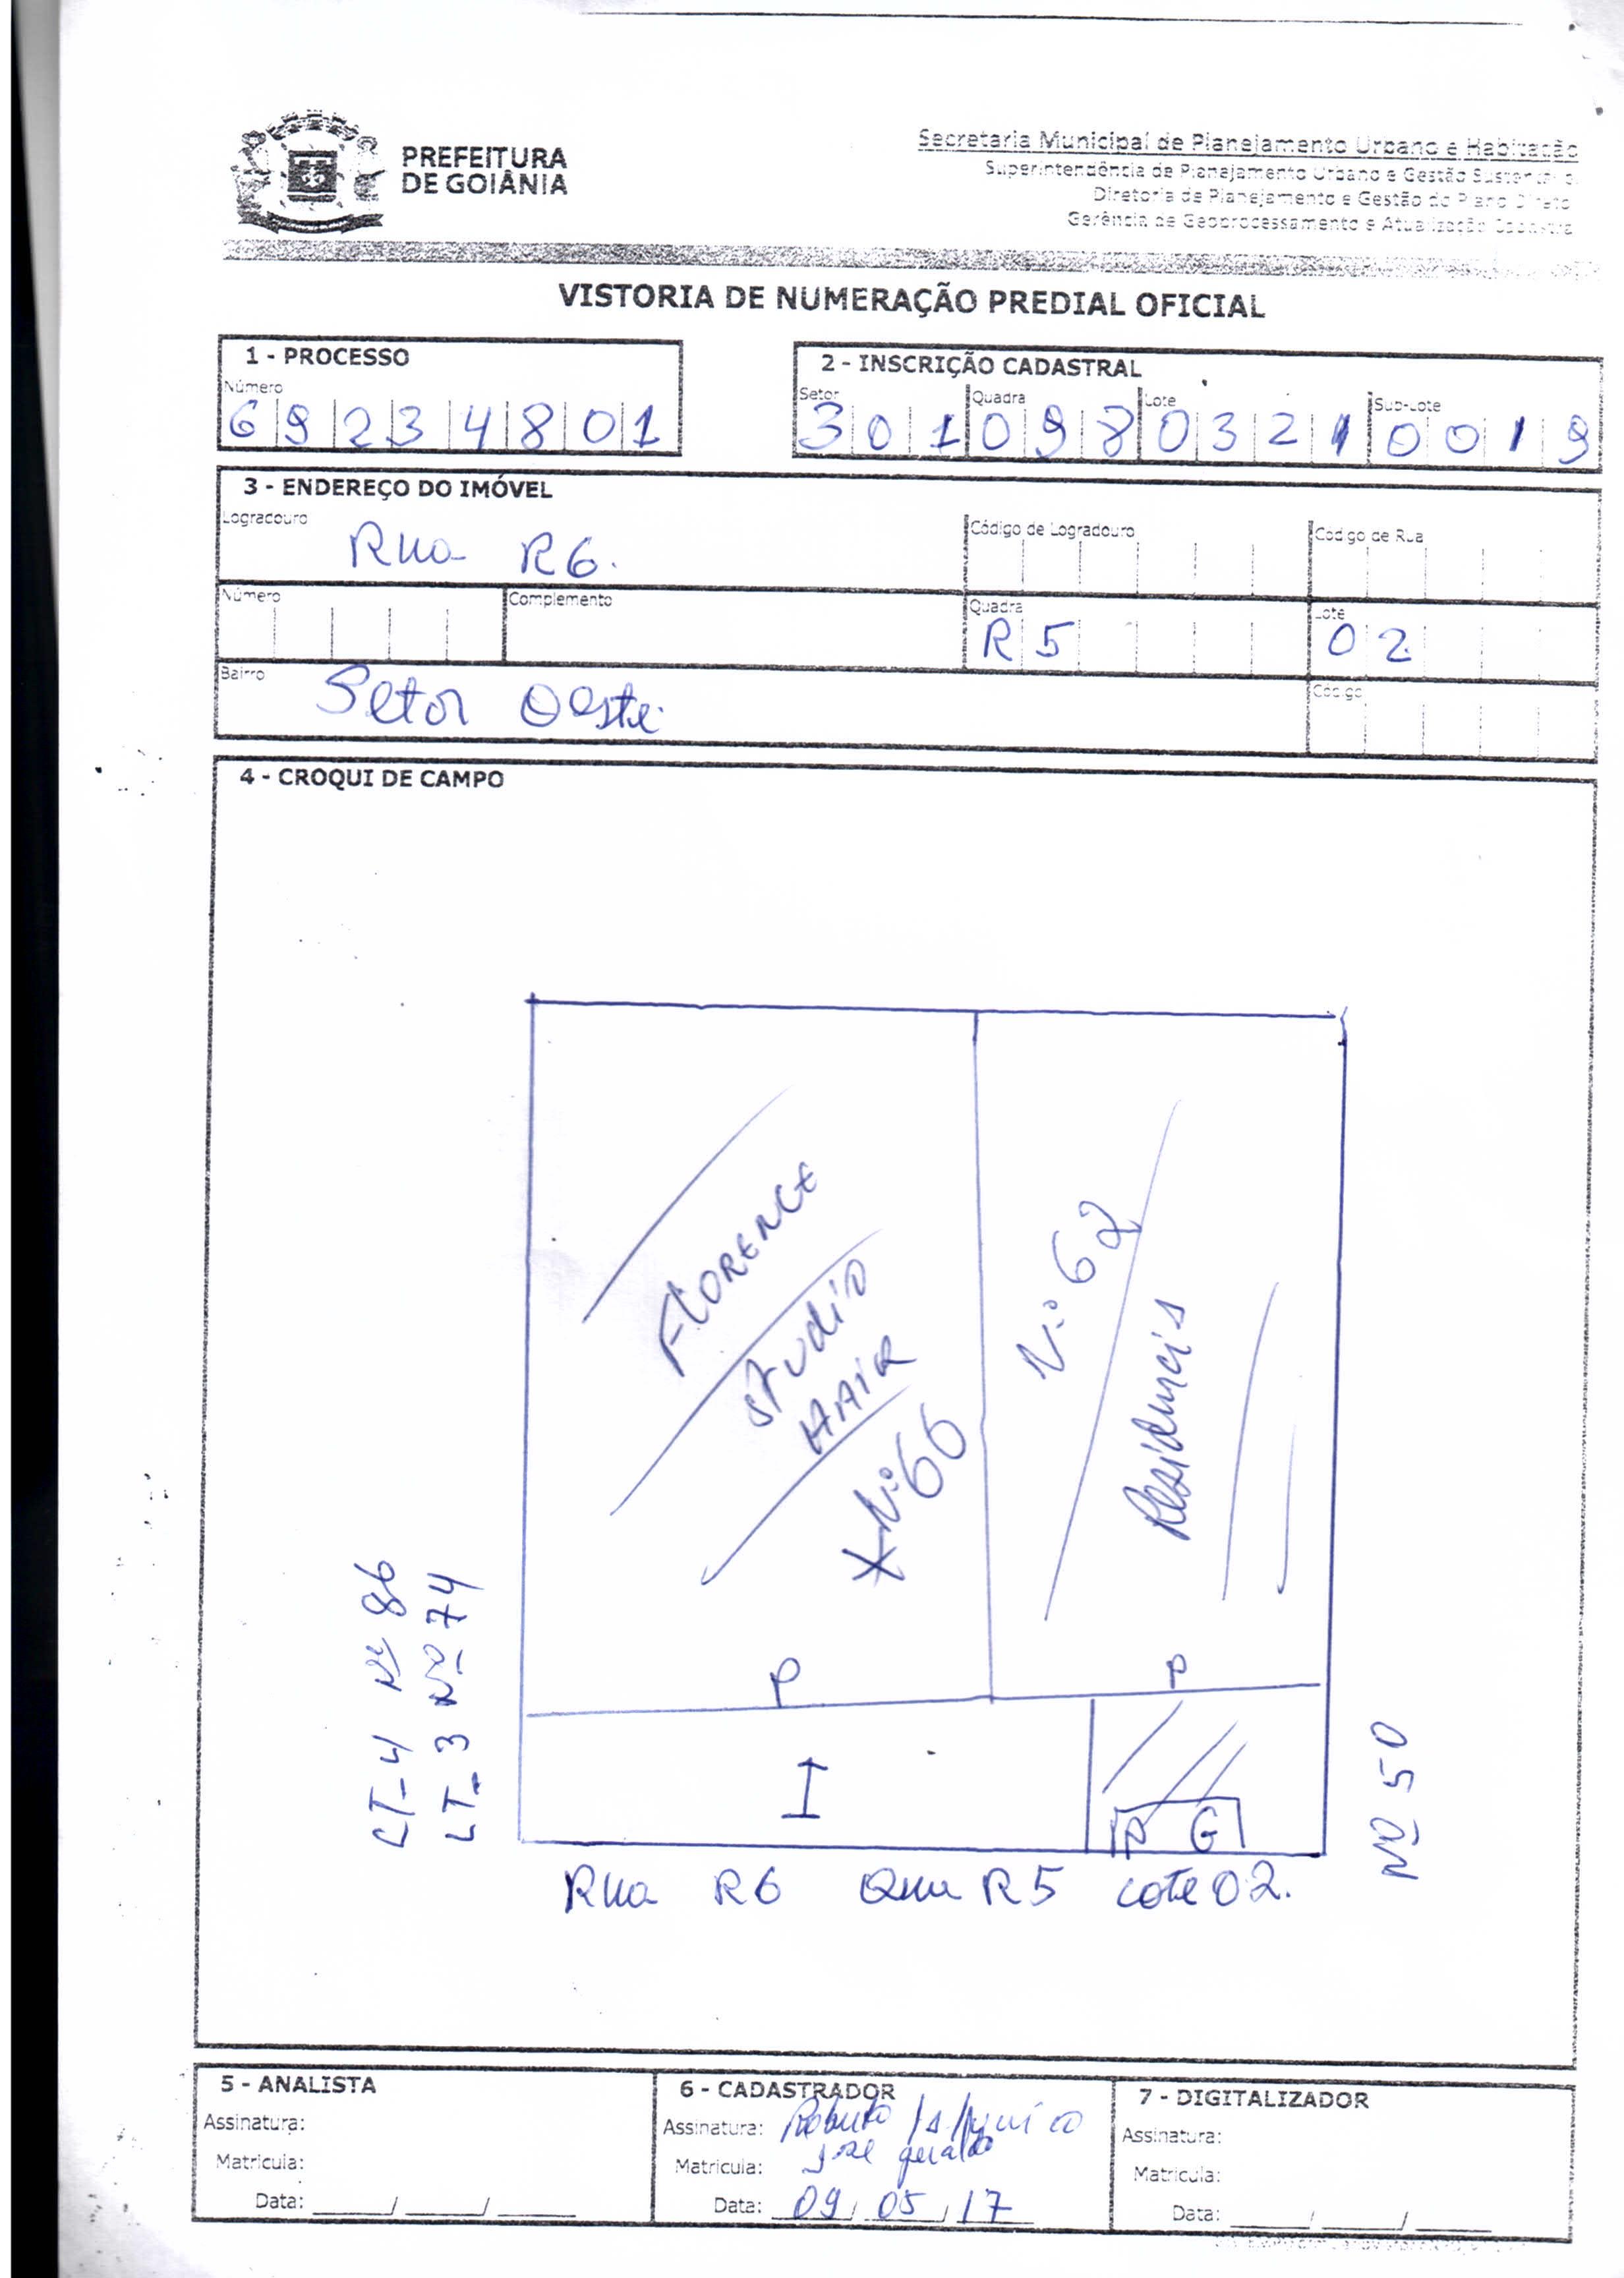 PREFEITURA
DE GOIÂNIA
Secretaria Municipal de Planejamento Urbano e Habitação
Superintendência de Planejamento Urbano e Gestão
Diretoria de Planejamento e Gestão do Plano
Gerência de Geoprocessamento e Atualização
VISTORIA DE NUMERAÇÃO PREDIAL OFICIAL
1 - PROCESSO
Número
6 9 2 3 4 8 0 1
2 - INSCRIÇÃO CADASTRAL
Setor Quadra Lote Sub-Lote
3 0 1 0 9 8 0 3 2 1 0 0 1 9
3 - ENDEREÇO DO IMÓVEL
Logradouro Código de Logradouro Código de Rua
Rua R6.
Número Complemento Quadra Lote
R 5 0 2
Bairro Código
Setor Oeste
4 - CROQUI DE CAMPO
FLORENCE
Studio
HAIR
X Nº 66
Nº 62
Residencis
LT_4 Nº 86
LT_3 Nº 74
P
P
I
P G
Nº 50
Rua R6 R5 Lote 02.
5 - ANALISTA
Assinatura:
Matricula:
Data: ____/____/____
6 - CADASTRADOR
Assinatura: Roberto
José geraldo
Matricula:
Data: 09/05/17
7 - DIGITALIZADOR
Assinatura:
Matricula:
Data: ____/____/____